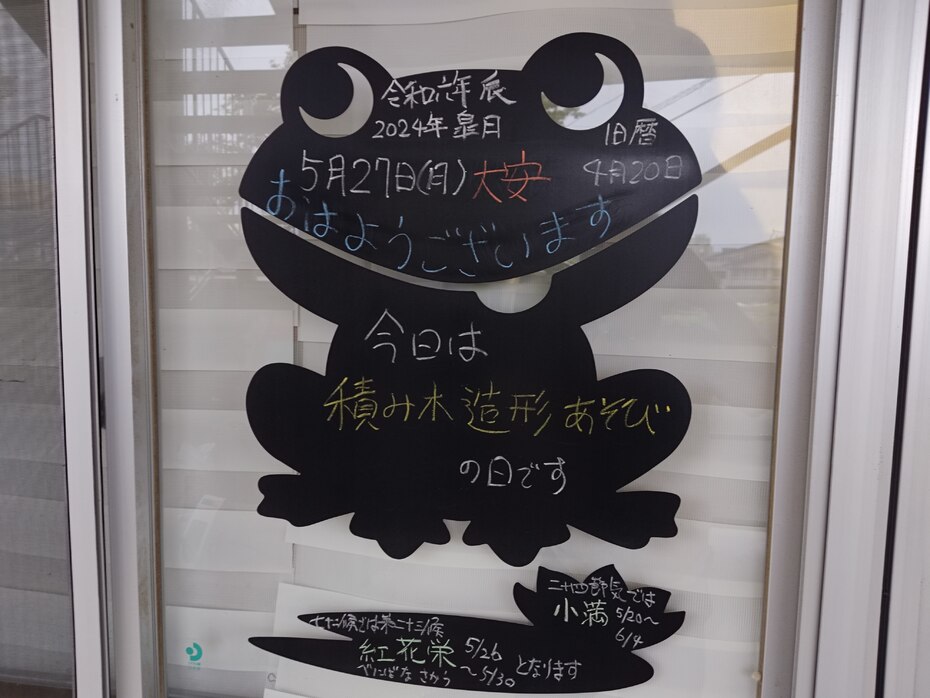 令和六年 辰
2024年 皐月
旧暦
4月20日
5月27日(月) 大安
おはようございます
今日は
積み木 造形 あそび
の日です
二十四節気では
小満 5/20~
6/4
七十二候では第二十三候
紅花栄 5/26
べにばなさかう ~5/30 となります